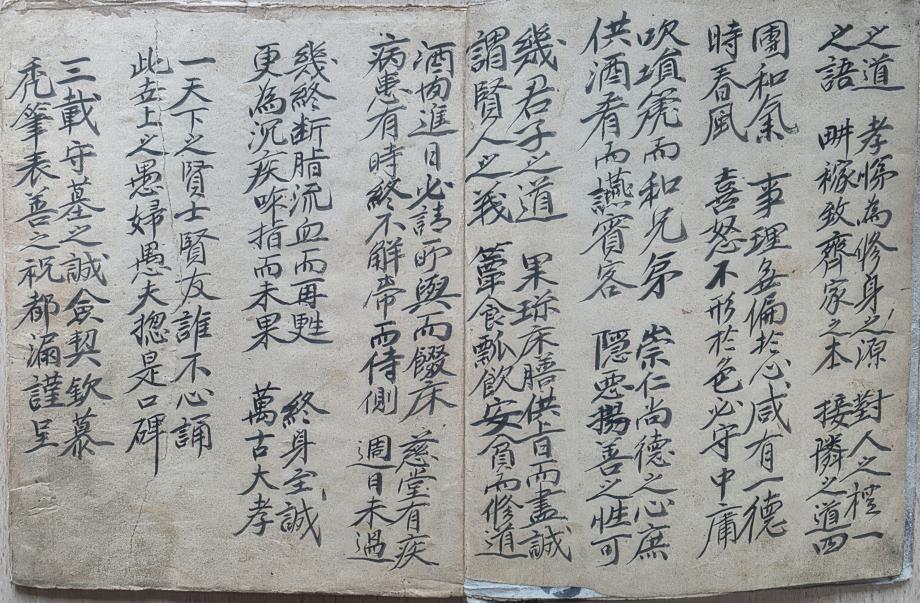 之道 孝悌為修身之源 對人之禮一
之語 畊稼致齊家之本 接隣之道四
團和氣 事理無偏於心咸有一德
時春風 喜怒不形於色必守中庸
吹塤篪而和兄弟 崇仁尚德之心庶
供酒肴而讌賓客 隱惡揚善之性可
幾君子之道 果珍床膳供旨而盡誠
謂賢人之義 簞食瓢飲安貧而修道
酒肉進日必請所與而餟床 慈堂有疾
病患有時終不解帶而侍側 週日未過
幾終断脂流血而再甦 終身至誠
更為沉疾咋指而未果 萬古大孝
一天下之賢士賢友誰不心誦
此世上之愚婦愚夫揔是口碑
三載守墓之誠僉契欽慕
禿筆表善之祝都漏謹呈